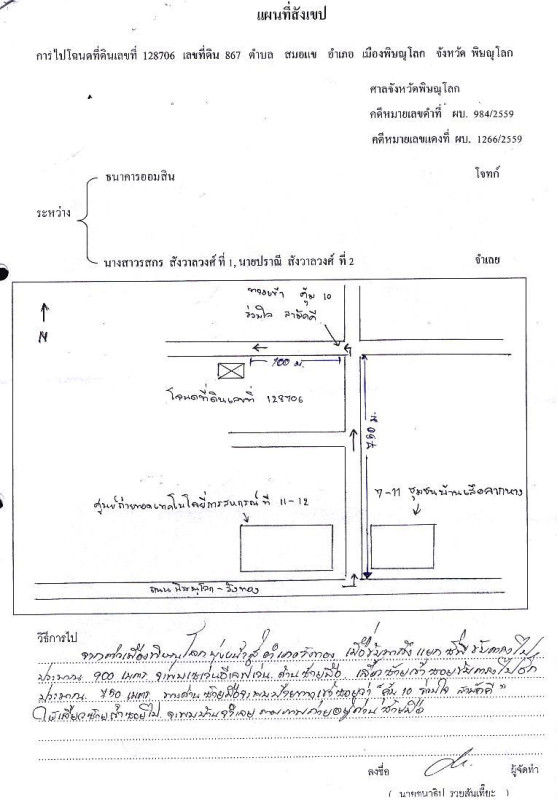 แผนที่สังเขป
การไปโฉนดที่ดินเลขที่ 128706 เลขที่ดิน 867 ตำบล สมอแข อำเภอ เมืองพิษณุโลก จังหวัด พิษณุโลก
ศาลจังหวัดพิษณุโลก
คดีหมายเลขดำที่ ผบ. 984/2559
คดีหมายเลขแดงที่ ผบ. 1266/2559
ธนาคารออมสิน โจทก์
ระหว่าง
นางสาววรสกร สังวาลวงศ์ ที่ 1, นายปราณี สังวาลวงศ์ ที่ 2 จำเลย
ทางเข้า คุ้ม 10
ร่วมใจ สามัคคี
N
100 ม.
โฉนดที่ดินเลขที่ 128706
790 ม.
ศูนย์ถ่ายทอดเทคโนโลยีการสหกรณ์ที่ 11-12
7-11 ชุมชนบ้านเสือลากหาง
ถนน พิษณุโลก - วังทอง
วิธีการไป
จากตัวเมืองพิษณุโลก มุ่งหน้าสู่ อำเภอวังทอง เมื่อข้ามถึง แยก ขับตรงไป
ประมาณ 900 เมตร จะพบเซเว่นอีเลฟเว่น ด้านซ้ายมือ เลี้ยวซ้ายเข้าซอยขับตรงไปอีก
ประมาณ 790 เมตร ทางด้านซ้ายมือจะพบป้ายทางเข้าซอยว่า "คุ้ม 10 ร่วมใจ สามัคคี"
ให้เลี้ยวซ้ายเข้าซอยไป จะพบบ้านจำเลย ตามภาพถ่ายอยู่ด้านซ้ายมือ
ลงชื่อ ผู้จัดทำ